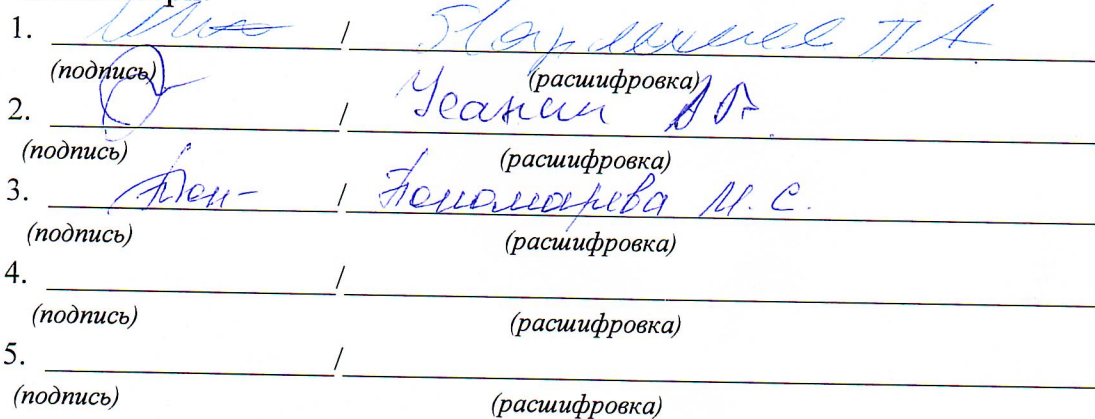 1. / П А
(подпись) (расшифровка)
2. / Усанин
(подпись) (расшифровка)
3. / Пономарева М. С.
(подпись) (расшифровка)
4. /
(подпись) (расшифровка)
5. /
(подпись) (расшифровка)